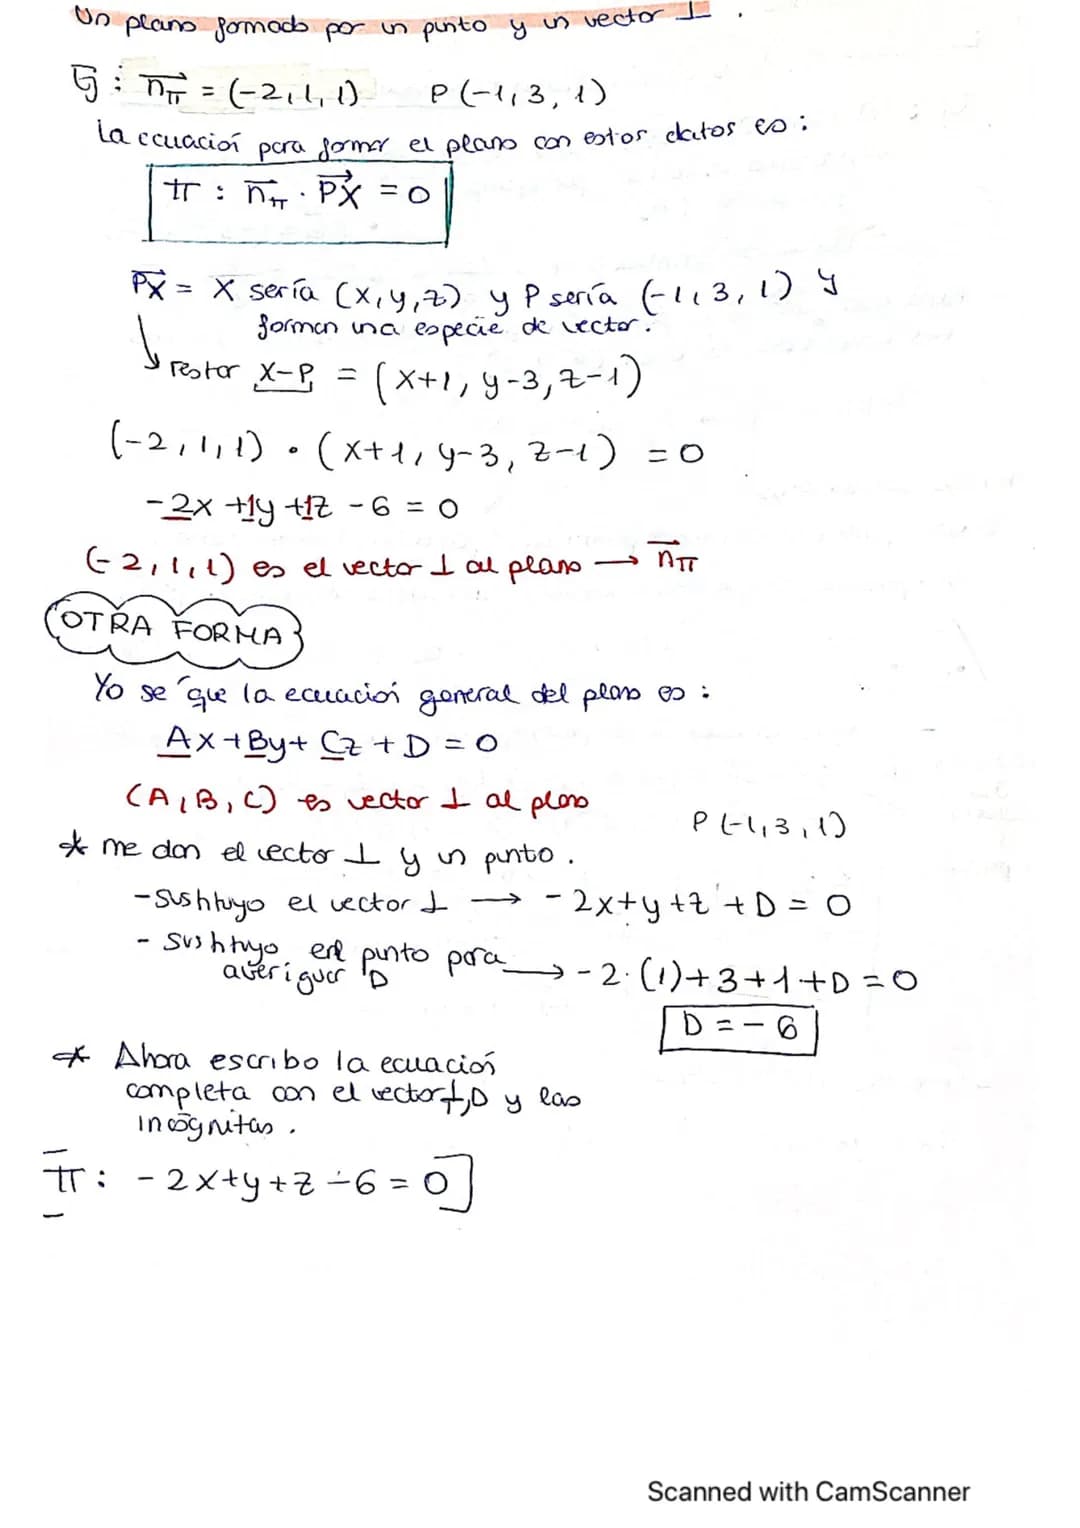 Un plano formado por un punto y un vector ⊥ .
Ej: n⃗π = (-2,1,1) P(-1,3,1)
La ecuación para formar el plano con estos datos es:
π : n⃗π · P⃗X = 0
P⃗X = X sería (x,y,z) y P sería (-1,3,1) y
forman una especie de vector.
↳ restar X-P = (x+1, y-3, z-1)
(-2,1,1) · (x+1, y-3, z-1) = 0
-2x +1y +1z - 6 = 0
(-2,1,1) es el vector ⊥ al plano → n⃗π
OTRA FORMA
Yo se que la ecuación general del plano es:
Ax + By + Cz + D = 0
(A,B,C) es vector ⊥ al plano
P(-1,3,1)
* me dan el vector ⊥ y un punto.
- Sustituyo el vector ⊥ → -2x+y+z+D = 0
- Sustituyo el punto para
averiguar D → -2·(1)+3+1+D = 0
D = -6
* Ahora escribo la ecuación
completa con el vector ⊥, D y las
incógnitas.
π: -2x+y+z-6 = 0
Scanned with CamScanner